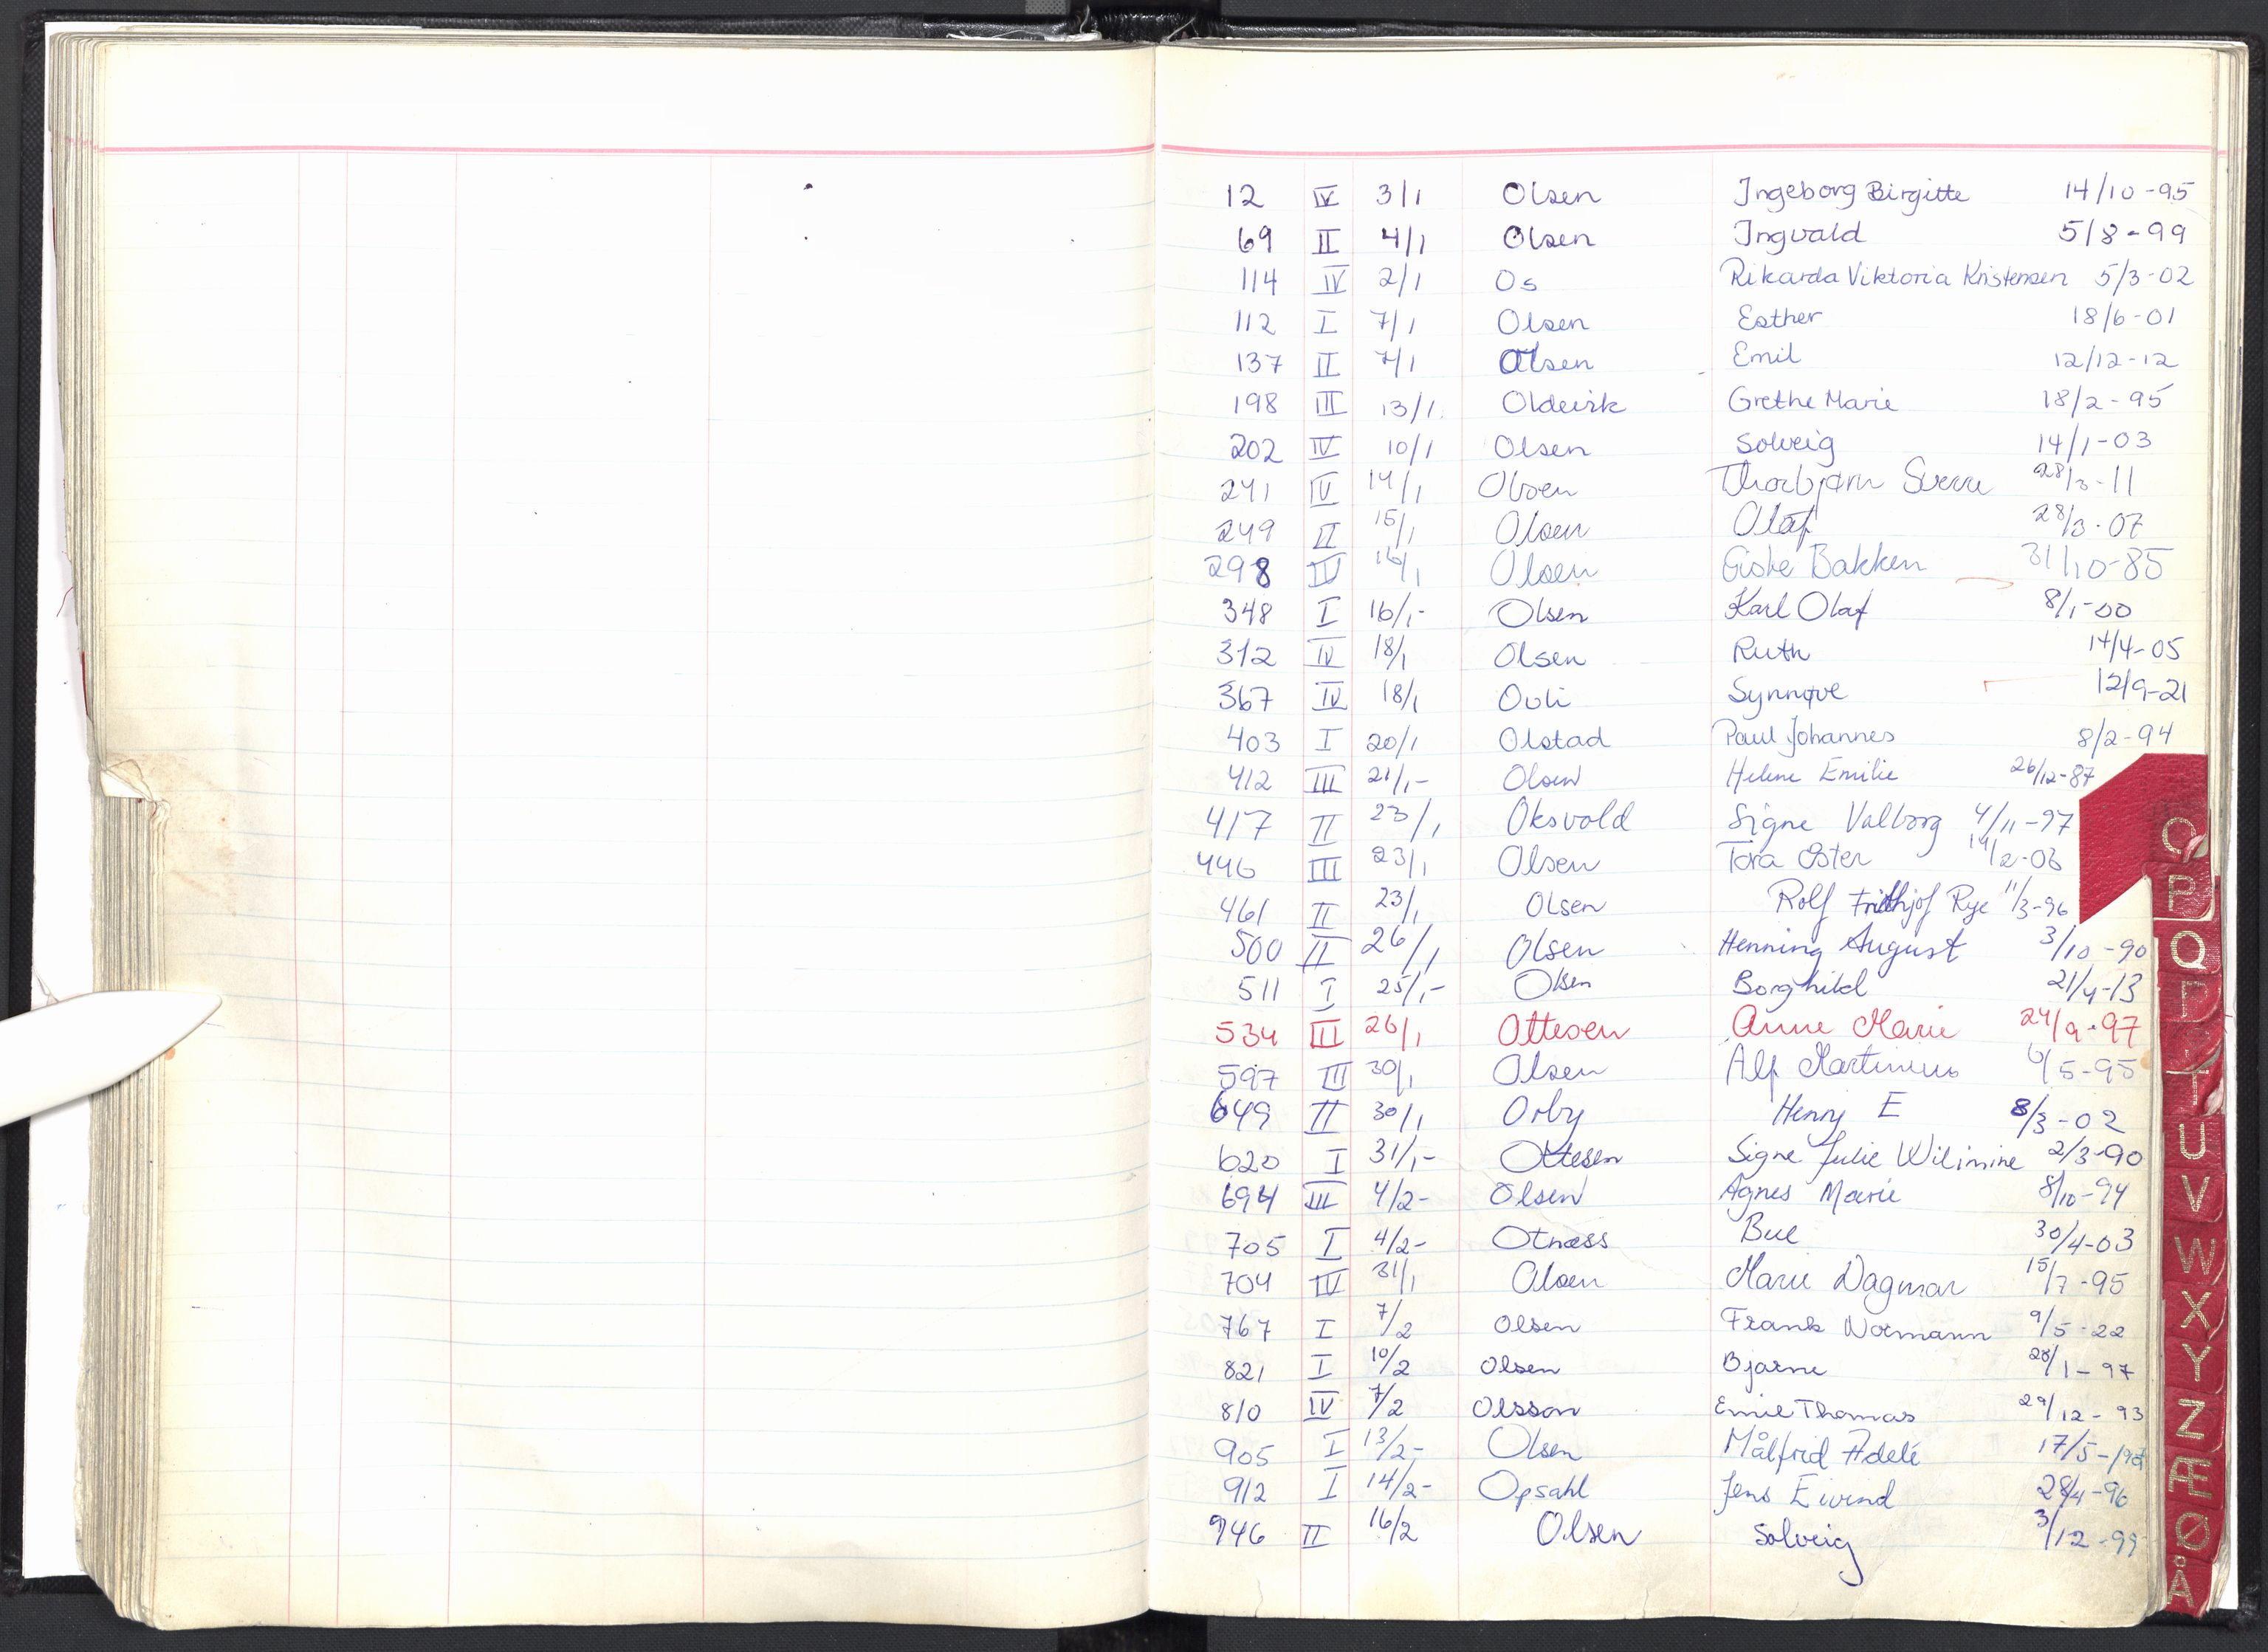 12 IV 3/1 Olsen Ingeborg Birgitte 14/10-95
69 II 4/1 Olsen Ingvald 5/8-99
114 IV 2/1 Os Rikarda Viktoria Kristensen 5/3-02
112 I 7/1 Olsen Esther 18/6-01
137 II 7/1 Olsen Emil 12/12-12
198 III 13/1 Oldeirk Grethe Marie 18/2-95
202 IV 10/1 Olsen Solveig 14/1-03
241 IV 14/1 Olsen Thorbjørn Sverre 28/3-11
249 II 15/1 Olsen Olaf 28/3-07
298 IV 16/1 Olsen Giske Bakken 31/10-85
348 I 16/1- Olsen Karl Olaf 8/1-00
312 IV 18/1 Olsen Ruth 14/4-05
367 IV 18/1 Ovli Synnøve 12/9-21
403 I 20/1 Olstad Paul Johannes 8/2-94
412 III 21/1- Olsen Helene Emilie 26/12-87
417 II 23/1 Oksvold Signe Valborg 4/11-97
446 III 23/1 Olsen Tora Ester 14/2-06
461 II 23/1 Olsen Rolf Fridthjof Rye 11/3-96
500 II 26/1 Olsen Henning August 3/10-90
511 I 25/1- Olsen Borghild 21/4-13
534 III 26/1 Ottesen Anne Marie 24/9-97
597 III 30/1 Olsen Alf Martinius 6/5-95
649 II 30/1 Orby Henry E 8/3-02
620 I 31/1- Ottesen Signe Julie Wilimine 2/3-90
694 III 4/2- Olsen Agnes Marie 8/10-94
705 I 4/2- Otnæss Bue 30/4-03
704 IV 31/1 Olsen Marie Dagmar 15/7-95
767 I 7/2 Olsen Frank Normann 9/5-22
821 I 10/2 Olsen Bjarne 28/1-97
810 IV 7/2 Olsson Emil Thomas 29/12-93
905 I 13/2- Olsen Målfrid Adele 17/5-
912 I 14/2- Opsahl Jens Eivind 28/4-96
946 II 16/2 Olsen Solveig 3/12-99
O
P
Q
U
V
W
X
Y
Z
Æ
Ø
Å